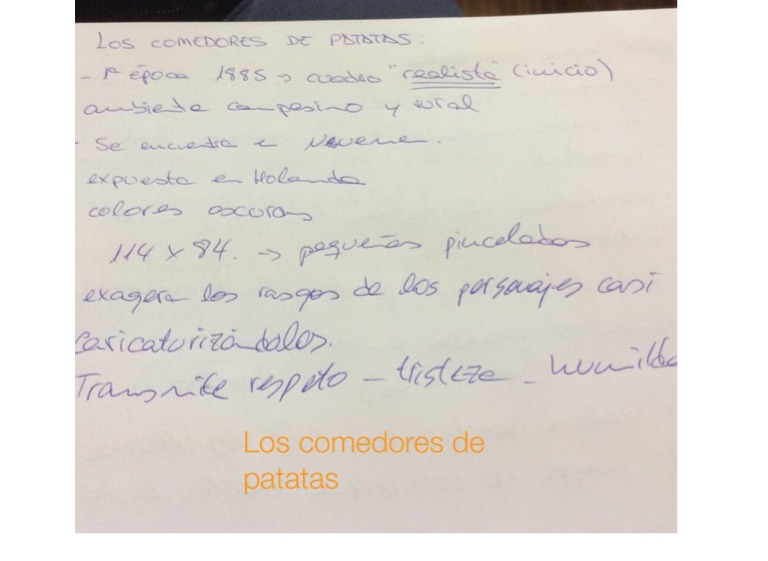 LOS COMEDORES DE PATATAS.
- 1ª época 1885 → cuadro "realista" (inicio)
ambiente campesino y rural
- Se encuentra en
expuesta en Holanda
colores oscuros
114 x 84. → pequeñas pinceladas
exagera los rasgos de los personajes casi
caricaturizándolos.
Transmite respeto - tristeza - humilda
Los comedores de
patatas